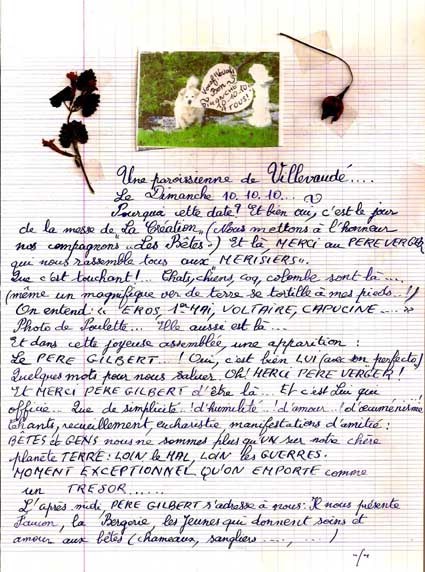 Bon
Dimanche
10.10.10
à TOUS!
Une paroissienne de Villevaudé....
Le Dimanche 10.10.10...
Pourquoi cette date? Et bien oui, c'est le jour
de la messe de "La Création" (Nous mettons à l'honneur
nos compagnons "Les Bêtes".) Et là MERCI au PERE VERGER
qui nous rassemble tous aux "MERISIERS".
Que c'est touchant!... Chats, chiens, coq, colombe sont là...
(même un magnifique ver de terre se tortille à mes pieds...!)
On entend: "EROS, 1er MAI, VOLTAIRE, CAPUCINE ...."
Photo de Poulette... Elle aussi est là...
Et dans cette joyeuse assemblée, une apparition:
Le PERE GILBERT...! Oui, c'est bien LUI (avec son perfecto)
Quelques mots pour nous saluer. Oh! MERCI PERE VERGER!
Et MERCI PERE GILBERT d'être là... Et c'est Lui qui
officie... Que de simplicité..! d'humilité..! d'amour...! d'œcuménisme
Chants, recueillement, eucharistie manifestations d'amitié:
BÊTES et GENS nous ne sommes plus qu'UN sur notre chère
planète TERRE: LOIN le MAL, LOIN les GUERRES.
MOMENT EXCEPTIONNEL QU'ON EMPORTE comme
un TRESOR......
L'après midi, PERE GILBERT s'adresse à nous: Il nous présente
Faucon, la Bergerie, les Jeunes qui donnent soins et
amour aux bêtes (chameaux, sangliers ...., ....)
-/-